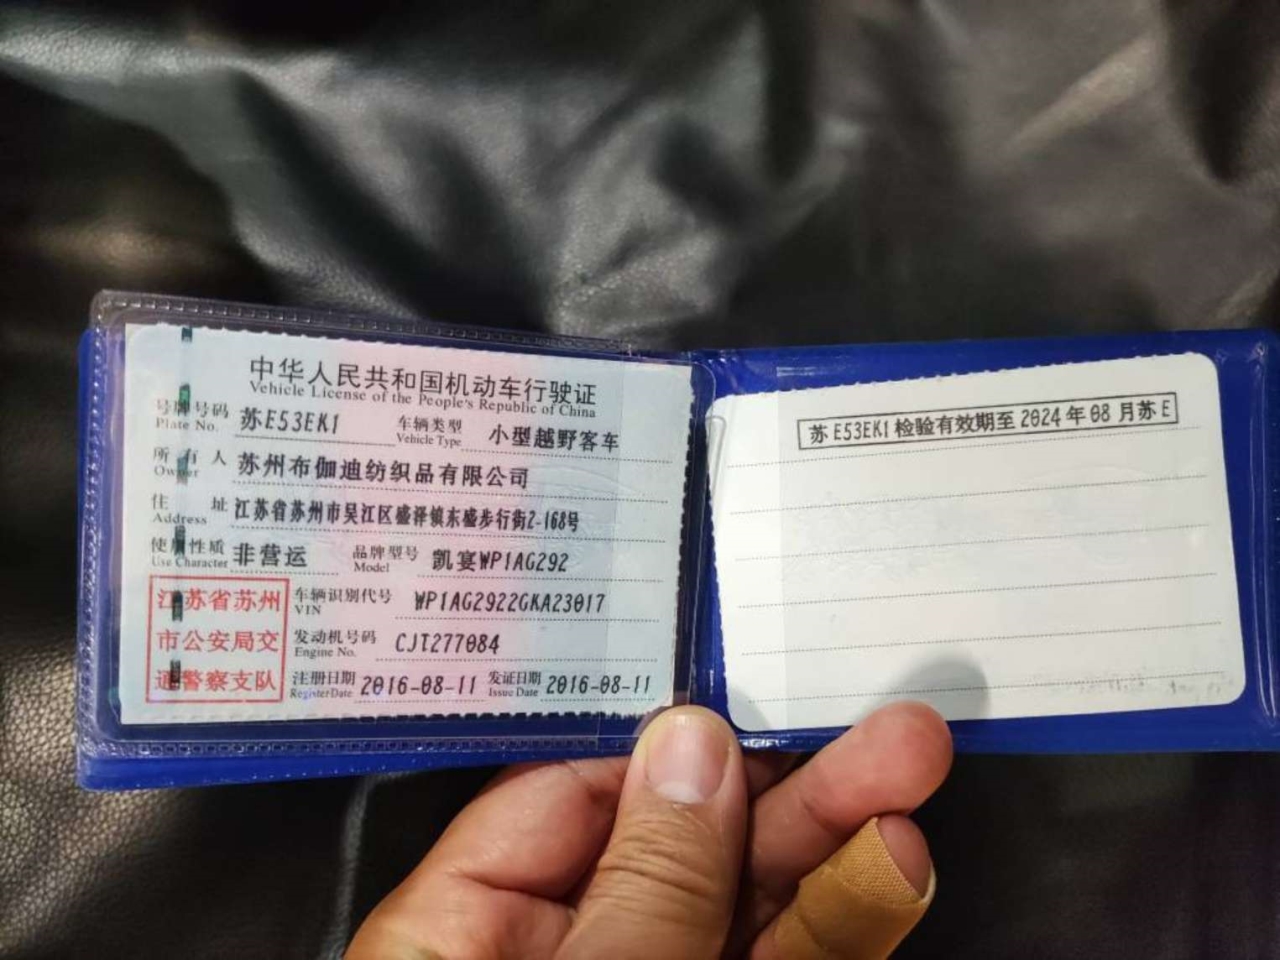 中华人民共和国机动车行驶证
Vehicle License of the People's Republic of China
号牌号码 苏E53EK1 车辆类型 小型越野客车
Plate No. Vehicle Type
所有人 苏州布伽迪纺织品有限公司
Owner
住址 江苏省苏州市吴江区盛泽镇东盛步行街2-168号
Address
使用性质 非营运 品牌型号 凯宴WP1AG292
Use Character Model
江苏省苏州
市公安局交
通警察支队
车辆识别代号 WP1AG2922GKA23017
VIN
发动机号码 CJT277084
Engine No.
注册日期 2016-08-11 发证日期 2016-08-11
Register Date Issue Date
苏E53EK1检验有效期至2024年08月苏E